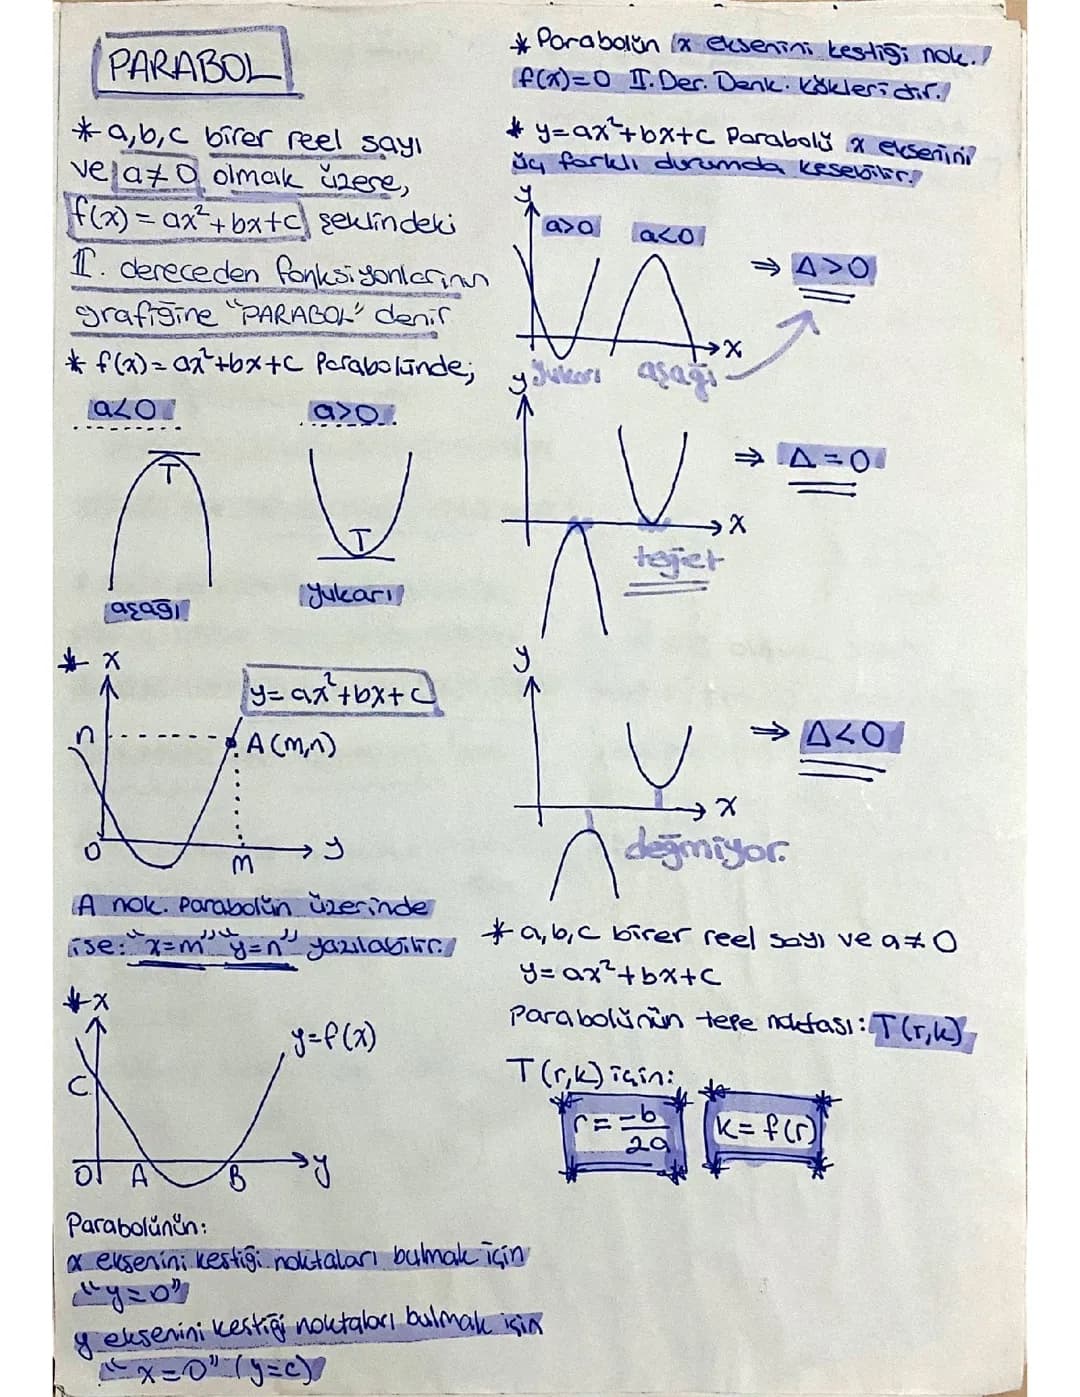 PARABOL
* a,b,c birer reel sayı
ve a≠0 olmak üzere,
f(x) = ax²+bx+c şeklindeki
II. dereceden fonksiyonlarının
grafiğine "PARABOL" denir
* f(x) = ax²+bx+c Parabolünde;
a<0 a>0
T T
aşağı yukarı
* x
y=ax²+bx+c
n A(m,n)
O m y
A nok. Parabolün üzerinde
ise: "x=m" "y=n" yazılabilir.
* x
y=f(x)
C
O A B y
Parabolünün:
x eksenini kestiği noktaları bulmak için
"y=0"
y eksenini kestiği noktaları bulmak için
"x=0" (y=c)
* Parabolün x eksenini kestiği nok.
f(x)=0 II. Der. Denk. Kökleridir.
* y=ax²+bx+c Parabolü x eksenini
üç farklı durumda kesebilir.
y
a>0 a<0
⇒ Δ>0
x
yukarı aşağı
y
⇒ Δ=0
x
teğet
y
⇒ Δ<0
x
değmiyor.
* a,b,c birer reel sayı ve a≠0
y=ax²+bx+c
Parabolünün tepe noktası: T(r,k)
T(r,k) için:
r=-b/2a k=f(r)